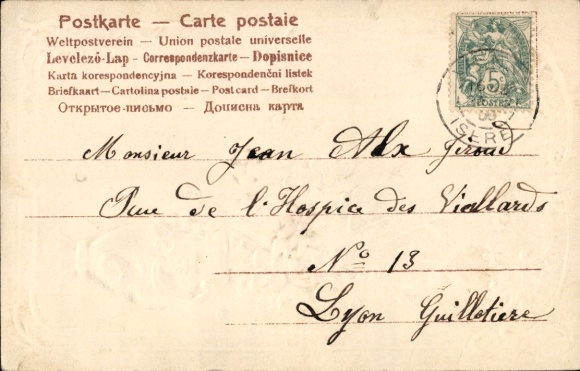 Postkarte — Carte postale
Weltpostverein — Union postale universelle
Levelező-Lap - Correspondenzkarte — Dopisnice
Karta korespondencyjna — Korespondenční listek
Briefkaart — Cartolina postale — Post card — Brefkort
Открытое-письмо — Дописна карта
5c
POSTES
ISERE
Monsieur Jean Alx Giroud
Rue de l'Hospice des Viallards
No 13
Lyon Guillotiere